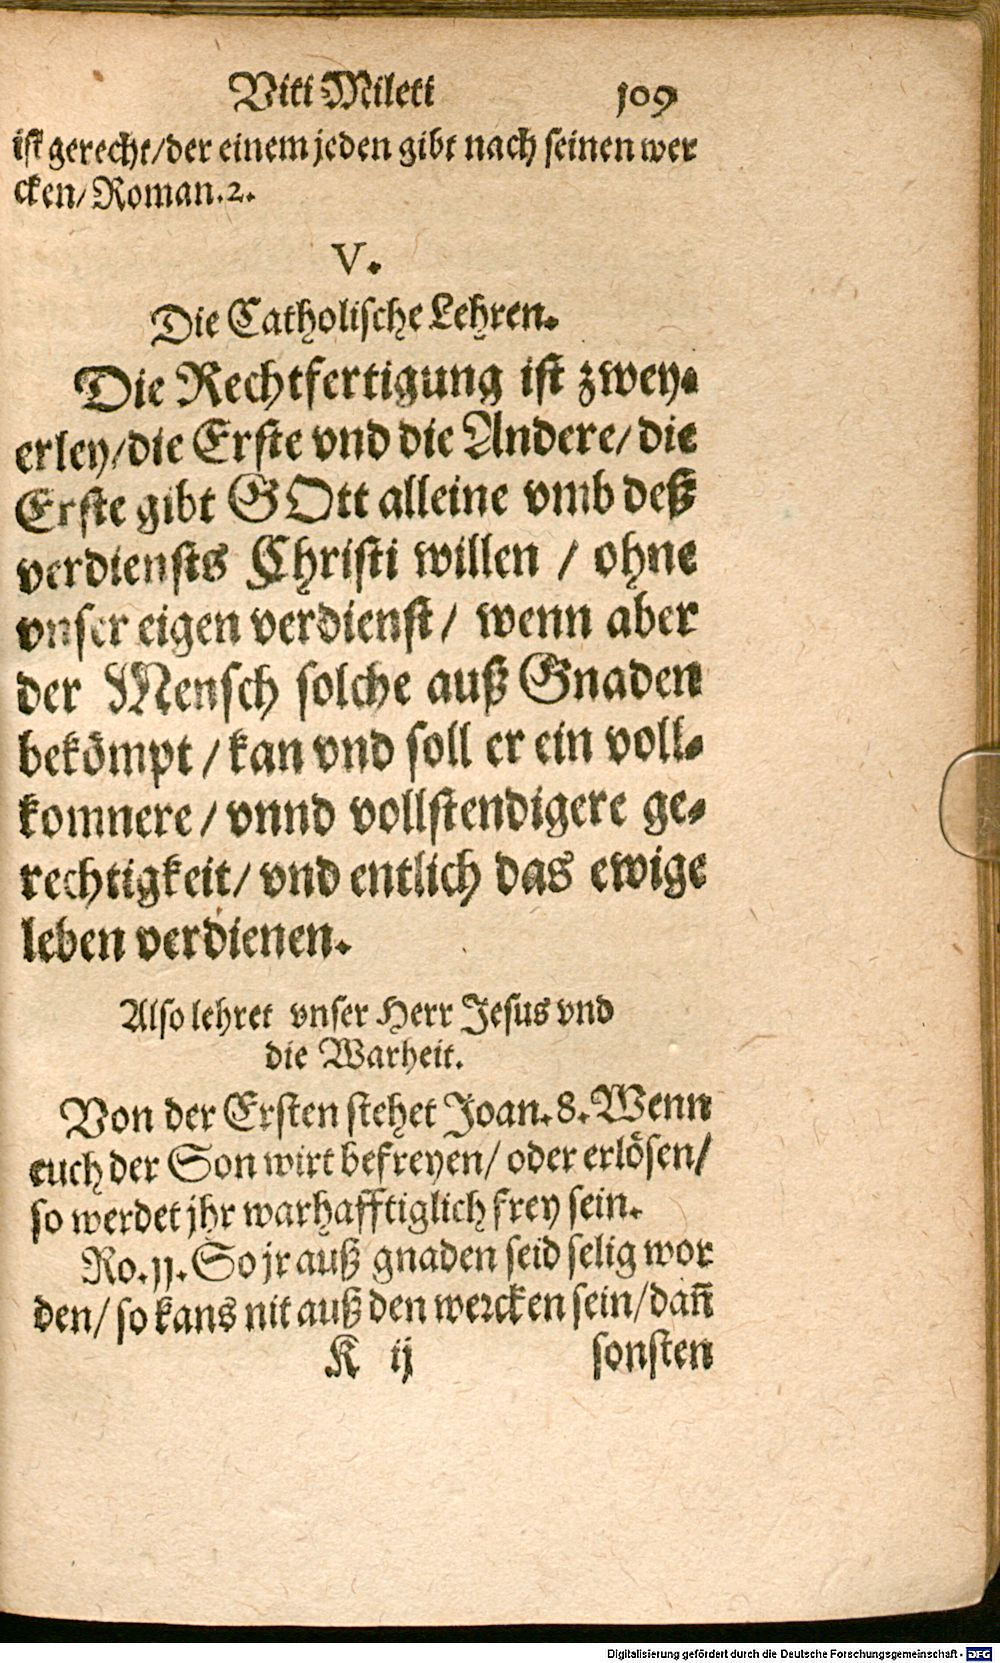 Viti Mileti 109
ist gerecht/der einem jeden gibt nach seinen wer
cken/Roman.2.
V.
Die Catholische Lehren.
Die Rechtfertigung ist zwey-
erley/die Erste vnd die Andere/die
Erste gibt GOtt alleine vmb deß
verdiensts Christi willen / ohne
vnser eigen verdienst/ wenn aber
der Mensch solche auß Gnaden
bekömpt/kan vnd soll er ein voll-
komnere/vnnd vollstendigere ge-
rechtigkeit/vnd entlich das ewige
leben verdienen.
Also lehret vnser Herr Jesus vnd
die Warheit.
Von der Ersten stehet Joan.8.Wenn
euch der Son wirt befreyen/oder erlösen/
so werdet jhr warhafftiglich frey sein.
Ro.11.So jr auß gnaden seid selig wor
den/so kans nit auß den wercken sein/dañ
K ij sonsten
Digitalisierung gefördert durch die Deutsche Forschungsgemeinschaft - DFG